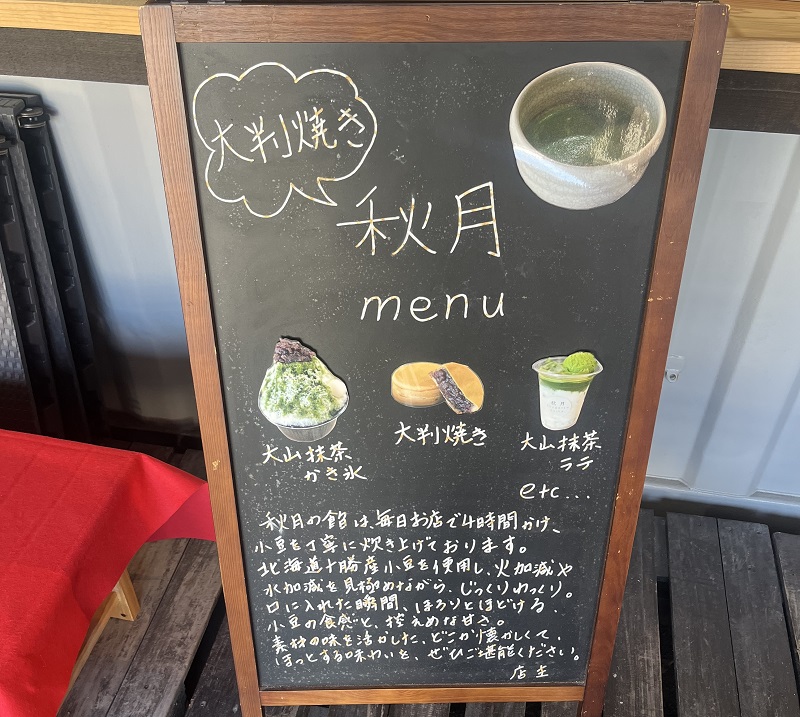 大判焼き
秋月
menu
大山抹茶
かき氷
大判焼き
大山抹茶
ラテ
etc...
秋月の餡は、毎日お店で4時間かけ、
小豆を丁寧に炊き上げております。
北海道十勝産小豆を使用し、火加減や
水加減を見極めながら、じっくりゆっくり。
口に入れた瞬間、ほろりとほどける、
小豆の食感と、控えめな甘さ。
素材の味を活かした、どこか懐かしくて、
ほっとする味わいを、ぜひご堪能ください。
店主